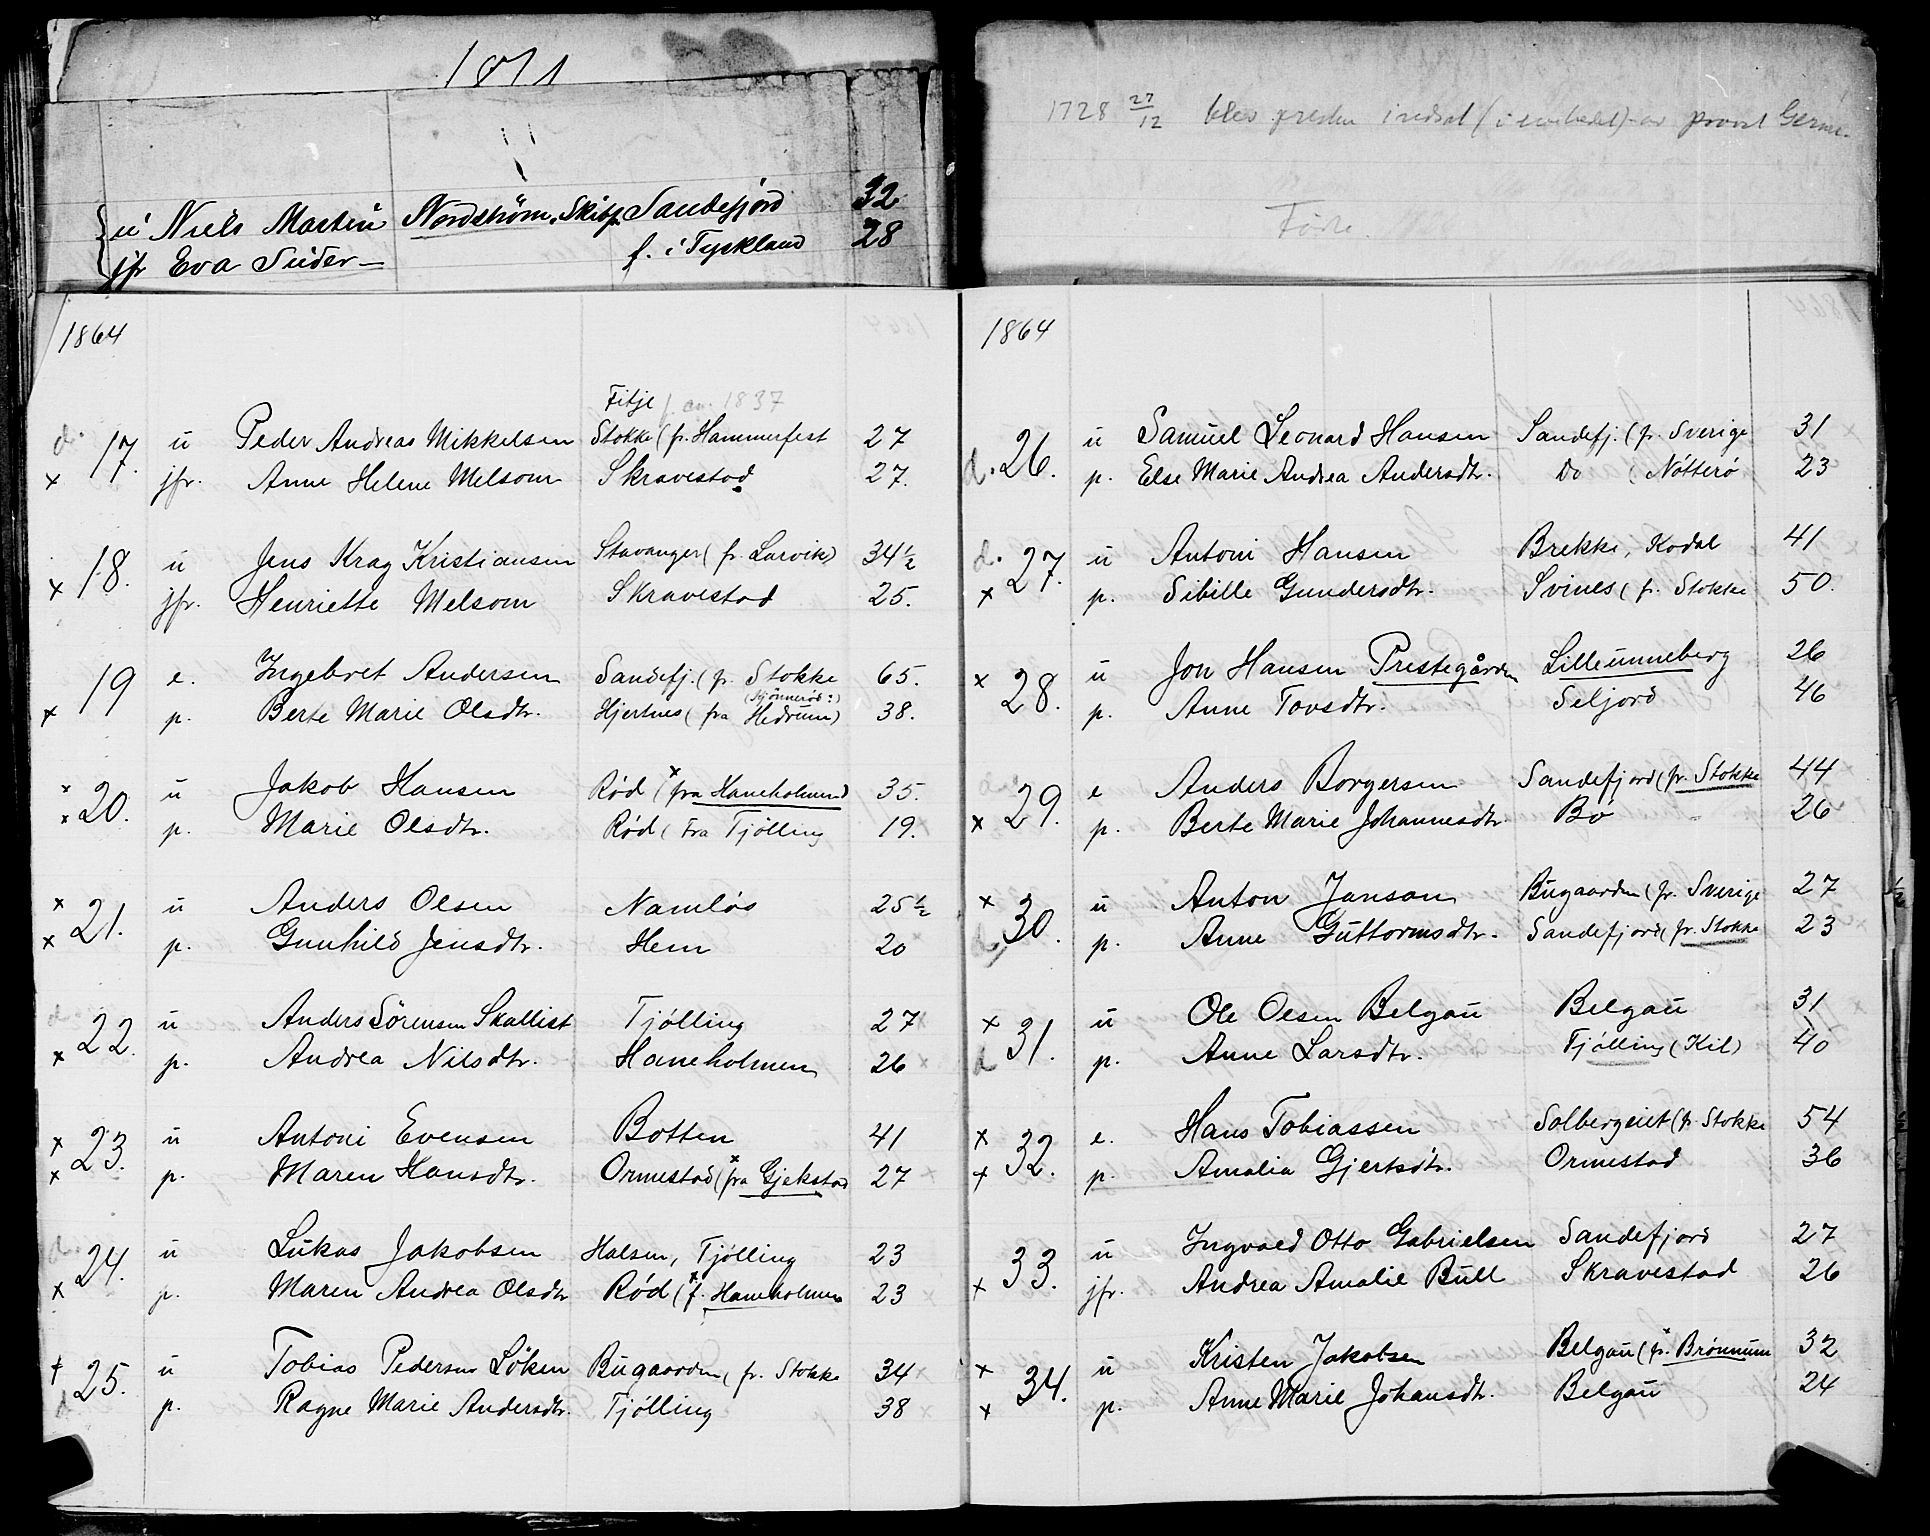 1871
u Niels Martin Nordstrøm, Skibsf. Sandefjord 32
jfr Eva Suder — f. i Tyskland 28
1728 27/12 blev presten indsat (i embedet) av provst
Føite.
1864
Fitje f. ca. 1837
d. 17. u Peder Andreas Mikkelsen Stokke (fr. Hammerfest 27
x jfr. Anne Helene Melsom Skravestad 27.
18. u Jens Krag Kristiansen Stavanger (fr. Larvik) 34½
x jfr. Henriette Melsom Skravestad 25.
19 e. Ingebret Andersen Sandefj. (fr. Stokke 65.
x p. Berte Marie Olsdtr. Hjertnes (fra Hedrum) 38.
x 20. u Jakob Hansen Rød (x fra Haneholmen) 35.
x p. Marie Olsdtr. Rød (Fra Tjølling 19.
x 21. u Anders Olsen Namløs 25½
x p. Gunhild Jensdtr. Hem 20
d. 22. u Anders Sörensen Skallist Tjølling 27
x p. Andrea Nilsdtr. Haneholmen 26
x 23. u Antoni Evensen Botten 41
x p. Maren Hansdtr. Ormestad (x fra Gjekstad 27
d. 24. u Lukas Jakobsen Halsen, Tjølling 23
x p. Maren Andrea Olsdtr Rød (x f. Haneholmen 23
x 25. u Tobias Pedersen Löken Bugaarden (fr. Stokke 34
d p. Ragne Marie Andersdtr. Tjølling 38
1864
d. 26. u Samuel Leonard Hansen Sandefj. (fr. Sverige 31
p. Else Marie Andrea Andersdtr. Do (Nötterö 23
d. 27. u Antoni Hansen Brekke, Kodal 41
x p. Sibille Gundersdtr. Svines (fr. Stokke 50.
x 28. u Jon Hansen Prestegården Lilleunneberg 26
p. Anne Tovsdtr. Seljord 46
29. e Anders Borgersen Sandefjord (fr. Stokke 44
x p. Berte Marie Johannesdtr. Bö 26
x 30. u Anton Janson Bugaarden (fr. Sverige 27
d p. Anne Guttormsdtr. Sandefjord (fr. Stokke 23
x 31. u Ole Olsen Belgau Belgau 31
d p. Anne Larsdtr. Tjølling (Kil) 40
x 32. e. Hans Tobiassen Solbergeiet (fr. Stokke 54
x p. Amalia Gjertsdtr. Ormestad 36
33. u Ingvald Otto Gabrielsen Sandefjord 27
x jfr. Andrea Amalie Bull Skravestad 26
x 34. u Kristen Jakobsen Belgau (x fr. Brönnum 32
x p. Anne Marie Johansdtr. Belgau 24